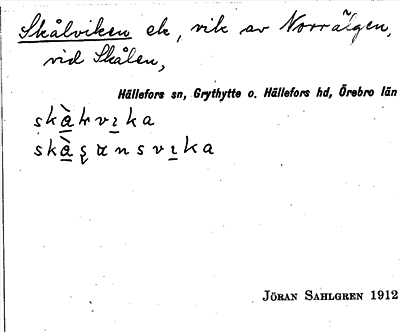 Skålviken ek, vik av Norrälgen,
vid Skålen,
Hällefors sn, Grythytte o. Hällefors hd, Örebro län
skàlvika
skàlansvika
JÖRAN SAHLGREN 1912